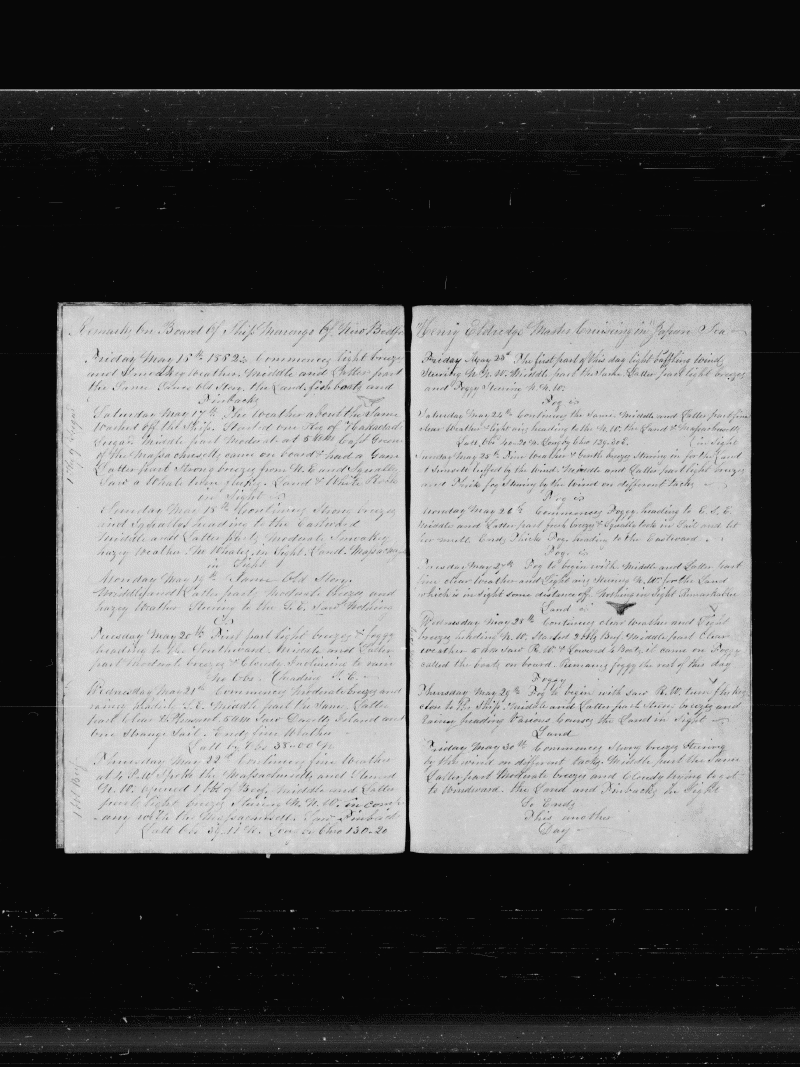 Remarks on Board Of Ship Marengo Of New Bedford
Friday May 15th 1852 Commences light breeze
and Smoky Weather Middle and Latter part
the Same Same old Story the Land fish boats and
Finbacks
Saturday May 17th The Weather about the Same
Washed off the Ship. Started one Hhg of
Sugar Middle part Moderate at 5 AM Capt Green
of the Massachusetts came on board & had a Gam
Latter part Strong breezes from N.E and Squally
Saw a Whale Land & White Rock
in Sight
Sunday May 18th Continues Strong breezes
and heading to the Eastward
Middle and Latter part Moderate Smoky
hazy Weather No Whales in Sight Land Massachusetts
in Sight
Monday May 19th Same Old Story
Middle and Latter part Moderate breeze and
hazy Weather Steering to the S.E. Saw Nothing
Tuesday May 20th First part light breezes & foggy
heading to the Southward Middle and Latter
part Moderate breezes & Cloudy Inclining to rain
No Obs. Heading S.E.
Wednesday May 21st Commences Moderate breezes and
rainy S.E. Middle part the Same Latter
part Clear & Pleasant 5 AM Saw Island and
one Strange Sail. Ends fine Weather
Latt by Obs 38-00 N.
Thursday May 22nd Continues fine Weather
at 4 P.M. Spoke the Massachusetts and
N.W. opened 1 bbl of Beef Middle and Latter
part light breeze Steering N.N.W. in comp
any with the Massachusetts. Saw Finbacks
Latt Obs N. Lon by Chro 130-20
1 Hhg Sugar
1 bbl Beef
Henry Eldredge Master Cruising in Japan Sea
Friday May 23d The first part of this day light baffling wind
Steering N.N.W. Middle part the Same Latter part light breezes
and Foggy Steering N.N.W.
Fog is
Saturday May 24th Continues the Same Middle and Latter part fine
clear Weather & light airs heading to the N.W. the Land & Massachusetts
Latt. Obs Long by Chro in Sight
Sunday May 25th Fine Weather & breeze Steering in for the Land
at Sunset luffed by the Wind. Middle and Latter part light breezes
and Thick fog Steering by the Wind on different tacks
Fog is
Monday May 26th Commences Foggy heading to E.S.E.
Middle and Latter part fresh breezes & Squally took in Sail and let
her Ends Thick Fog heading to the Eastward
Fog is
Tuesday May 27th Fog to begin with Middle and Latter part
fine clear Weather and light airs Steering N.W. for the Land
which is in Sight some distance off Nothing in Sight Remarkable
Land is
Wednesday May 28th Continues clear Weather and light
breezes heading N.W. Started 2 bbls Beef Middle part Clear
Weather 5 AM Saw R.W. & Lowered 3 boats it came on Foggy
called the boats on board. Remains foggy the rest of this day
Foggy
Thursday May 29th Fog to begin with saw R.W. turn flukes
close to the Ship. Middle and Latter part Strong breezes and
Rainy heading Various Courses the Land in Sight
Land
Friday May 30th Commences Strong breezes Steering
by the wind on different tacks Middle part the Same
Latter part Moderate breezes and Cloudy trying to get
to Windward. the Land and Finbacks in Sight
So Ends
This another
Day